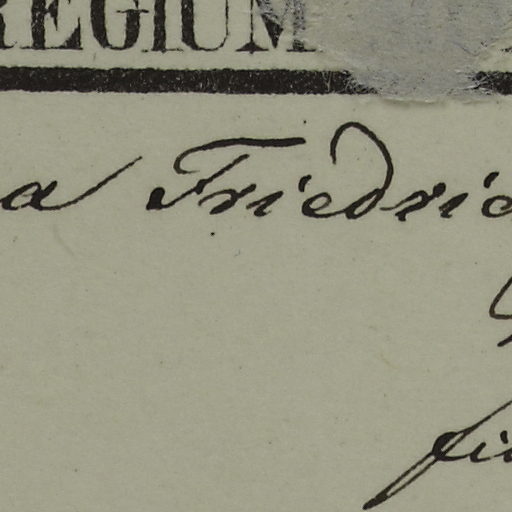 REGIUM
a Friedric
fi